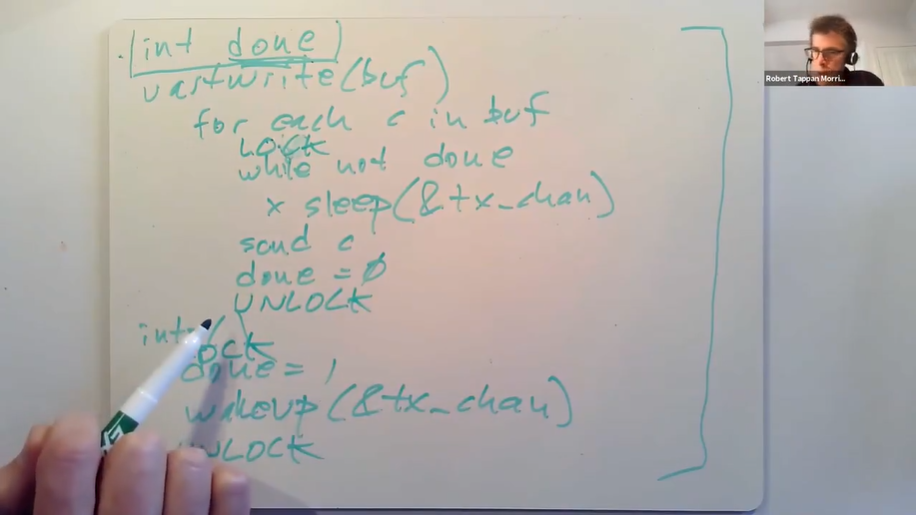 int done
uartwrite(buf)
for each c in buf
LOCK
while not done
x sleep(&tx_chan)
send c
done = 0
UNLOCK
int
LOCK
done = 1
wakeup(&tx_chan)
UNLOCK
Robert Tappan Morri...